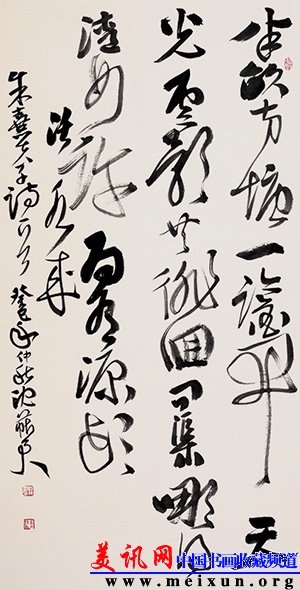 半畝方塘一鑑開天
光雲影共徘徊問渠哪得
清如許為有源頭
活水来
朱熹夫子詩一首 癸巳年仲秋沈
美讯网 中国书画收藏频道
www.meixun.org